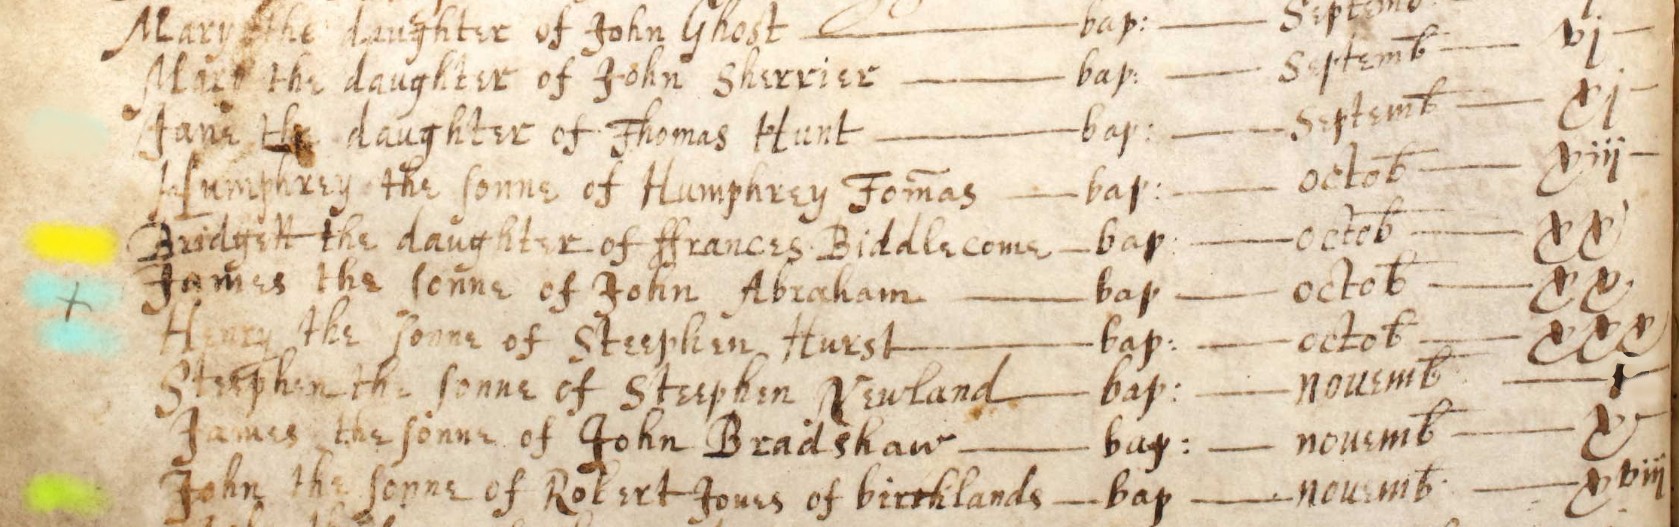 Mary the daughter of John Ghost bap: Septemb
Mary the daughter of John Sherrier bap: Septemb vj
Jane the daughter of Thomas Hunt bap: Septemb xj
Humphrey the sonne of Humphrey Tom̄as bap: octob xviij
Bridgett the daughter of ffrances Biddlecome bap: octob xx
James the sonne of John Abraham bap octob xx
Henry the sonne of Steephen Hurst bap: octob xxx
Steephen the sonne of Steephen Newland bap: novemb j
James the sonne of John Bradshaw bap: novemb x
John the sonne of Robert Joves of birchlands bap novemb xviij